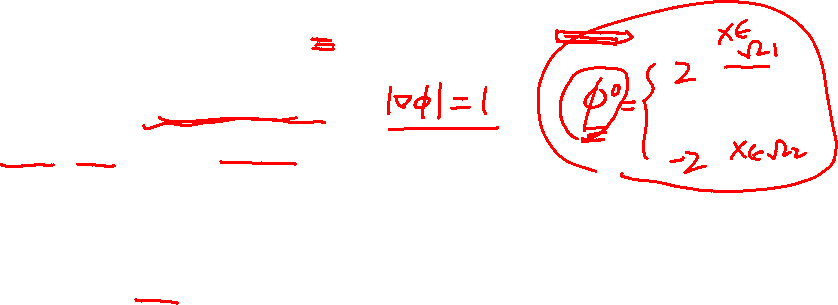 =
|∇φ| = 1
φ⁰ = { 2 x∈Ω₁
-2 x∈Ω₂